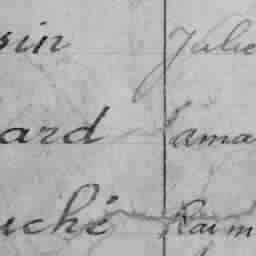 sin Julie
ard Lama
uché Raim